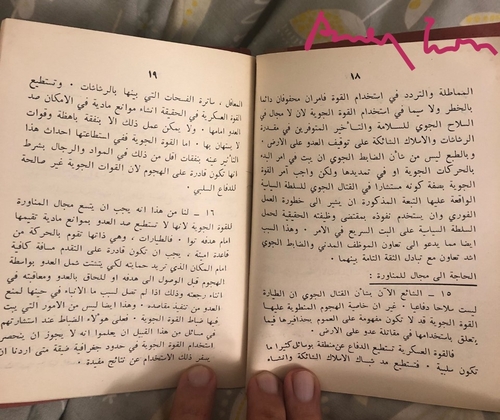 ١٨
المماطلة والتردد في إستخدام القوة فامران محفوفان دائما
بالخطر ولا سيما في استخدام القوة الجوية لان لا مجال في
السلاح الجوي للسلامة والتأخير المتوفرين في مقدرة
الرشاشات والاملاك الشائكة على توقيف العدو على الارض.
وبالطبع ليس من شأن الضابط الجوي ان يبت في امر البدء
بالحركات الجوية او في تمديدها ولكن واجب آمر القوة
الجوية بصفة كونه مستشارا في القتال الجوي للسلطة السياسية
الواقعة عليها التبعة المذكورة ان ينير الى خطورة العمل
الفوري وان يستخدم نفوذه بمقتضى وظيفته الحقيقية لحمل
السلطة السياسية على البت السريع في الامر. وهذا السبب
ايضا مما يدعو الى تعاون الموظف المدني والضابط الجوي
اتد تعاون مع تبادل الثقة التامة بينهما.
الحاجة الى مجال للمناورة:
١٥ - الشائع الآن بشأن القتال الجوي ان الطيارة
ليست سلاحا دفاعيا. غير ان خاصة الهجوم المنطوية عليها
القوة الجوية قد لا تكون مفهومة على العموم بحذافيرها فيما
يتعلق باستخدامها في مقاتلة عدو على الارض.
فالقوة العسكرية تستطيع الدفاع عن منطقة بوسائل كثيرا ما
تكون سلبية. فتستطيع مد شباك الاملاك الشائكة وانشاء
١٩
المعاقل، ساترة الفسحات التي بينها بالرشاشات. وتستطيع
القوة العسكرية في الحقيقة انشاء موانع مادية في الامكان صد
العدو امامها. ولا يمكن عمل ذلك الا بنفقة باهظة وقوات
لا يستهان بها. اما القوة الجوية ففي استطاعتها احداث هذا
التأثير عينه بنفقات اقل من ذلك في المواد والرجال بشرط
انها تكون قادرة على الهجوم لان القوات الجوية غير صالحة
للدفاع السلبي.
١٦ - لنا من هذا انه يجب ان يتسع مجال المناورة
للقوة الجوية لانها لا تستطيع صد العدو بموانع مادية تقيمها
امام هدفه توا. فالطيارات، وهي ذاتها تقوم بالحركة من
قاعدة امينة، يجب ان تكون قادرة على التقدم مسافة كافية
امام المكان الذي تريد حمايته لكي يتشتت شمل العدو بواسطة
الهجوم قبل الوصول الى هدفه او للحاق بالعدو ومعاقبته في
اثناء رجعته وذلك اذا لم تقبل لسبب ما الانباء في حينها لمنع
العدو من تنفيذ مقاصده. وهذا ايضا ليس من الامور التي يبت
فيها ضباط القوة الجوية. فعلى هؤلاء الضباط عند استشارتهم
في مسائل من هذا القبيل ان يعلموا انه لا يجوز ان ينحصر
استخدام القوة الجوية في حدود جغرافية ضيقة متى اردنا ان
يسفر ذلك الاستخدام عن نتائج مفيدة.